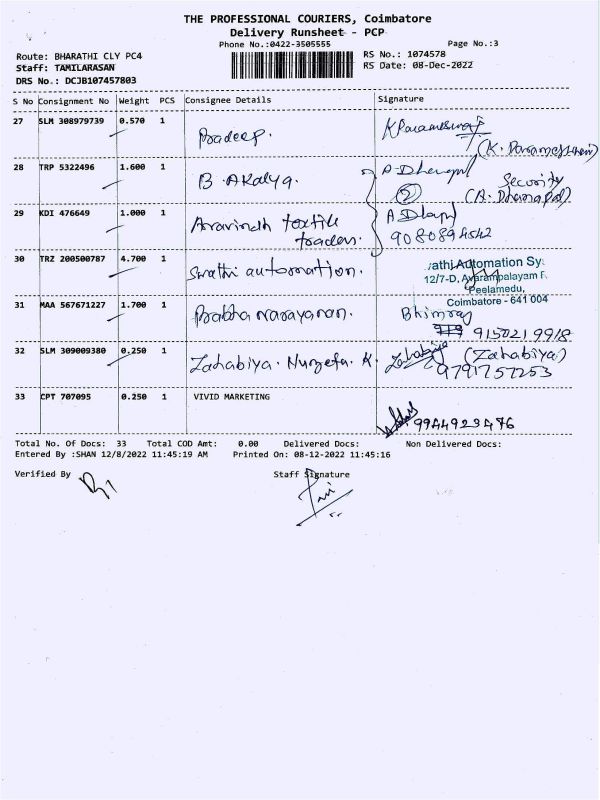 THE PROFESSIONAL COURIERS, Coimbatore
Delivery Runsheet - PCP
Phone No.:0422-3505555
Page No.:3
Route: BHARATHI CLY PC4
RS No.: 1074578
Staff: TAMILARASAN
RS Date: 08-Dec-2022
DRS No.: DCJB107457803
S No Consignment No Weight PCS Consignee Details Signature
27 SLM 308979739 0.570 1 Pradeep. K Parameswar
28 TRP 5322496 1.600 1 B. Akalya. A-Dhanapal Security
(A. Dhanapal)
29 KDI 476649 1.000 1 Aravindh textile
traders.
9080894542
30 TRZ 200500787 4.700 1 Swathi automation.
athi Automation Sy
12/7-D, Avarampalayam
Peelamedu,
Coimbatore - 641 004
31 MAA 567671227 1.700 1 Prabha narayanan. Bhimraj
9150219918
32 SLM 309009380 0.250 1 Zahabiya. K. Zahabiya (Zahabiya)
9791757253
33 CPT 707095 0.250 1 VIVID MARKETING
9944923476
Total No. Of Docs: 33 Total COD Amt: 0.00 Delivered Docs: Non Delivered Docs:
Entered By :SHAN 12/8/2022 11:45:19 AM Printed On: 08-12-2022 11:45:16
Verified By Staff Signature